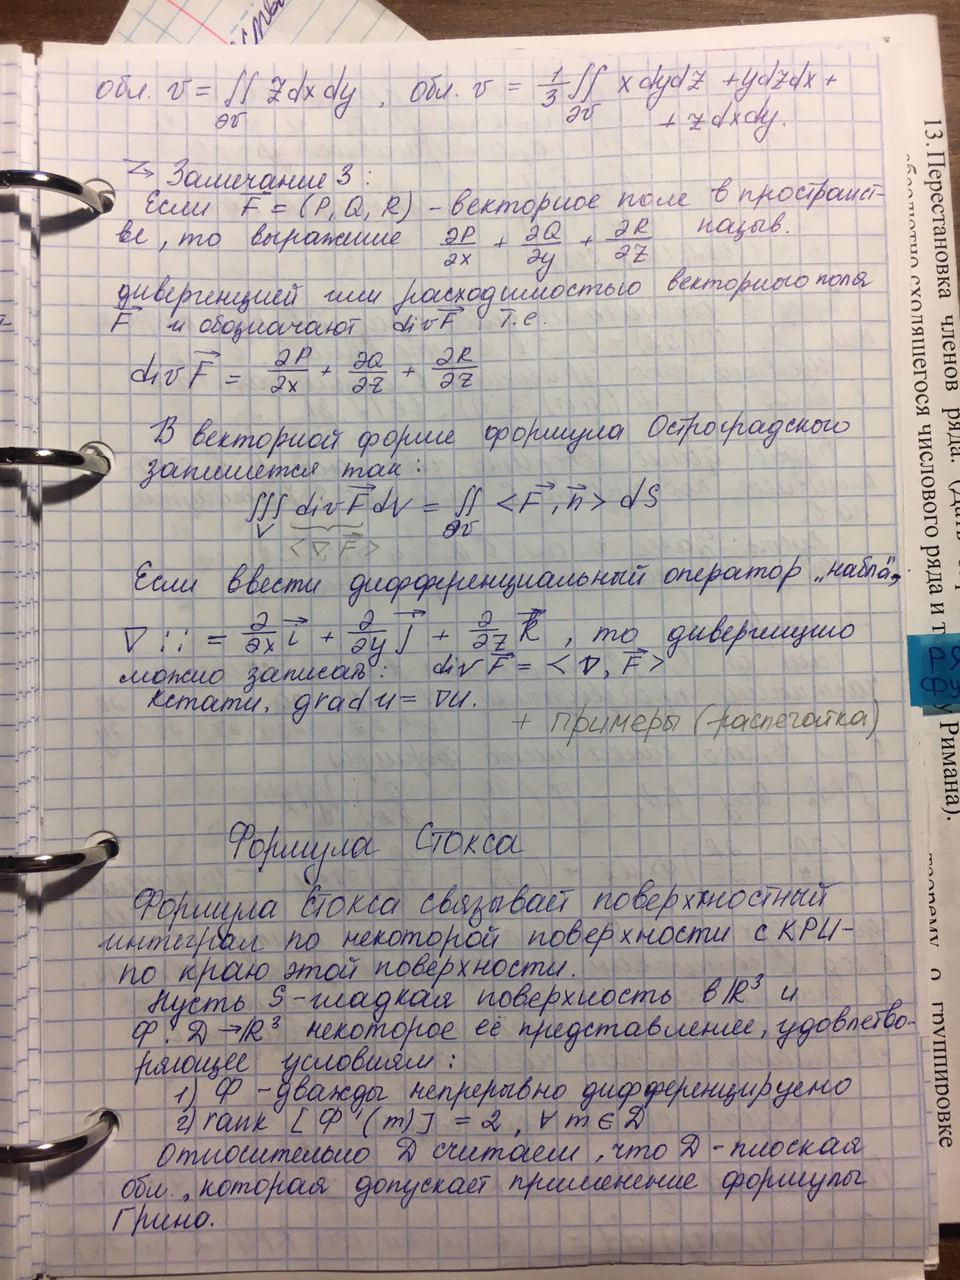 обл. v = ∬ z dx dy , обл. v = 1/3 ∬ x dy dz + y dz dx +
∂v ∂v + z dx dy.
Замечание 3:
Если F = (P, Q, R) - векторное поле в пространст-
ве, то выражение ∂P/∂x + ∂Q/∂y + ∂R/∂z назыв.
дивергенцией или расходимостью векторного поля
F и обозначают div F т.е.
div F = ∂P/∂x + ∂Q/∂z + ∂R/∂z
В векторной форме формула Остроградского
запишется так:
∭ div F dV = ∬ <F, n> dS
V ∂v
<∇, F>
Если ввести дифференциальный оператор „набла",
∇ :: = ∂/∂x i + ∂/∂y j + ∂/∂z k , то дивергенцию
можно записать: div F = <∇, F>
Кстати, grad u = ∇u.
+ примеры (распечатка)
Формула Стокса
Формула Стокса связывает поверхностный
интеграл по некоторой поверхности с КРИ-
по краю этой поверхности.
Пусть S - гладкая поверхность в R³ и
Ф: D → R³ некоторое её представление, удовлетво-
ряющее условиям:
1) Ф - дважды непрерывно дифференцируемо
2) rank [Ф'(m)] = 2, ∀ m ∈ D
Относительно D считаем, что D - плоская
обл., которая допускает применение формулы
Грина.
13. Перестановка членов ряда.
сходящегося числового ряда и т
у Римана).
теорему о группировке